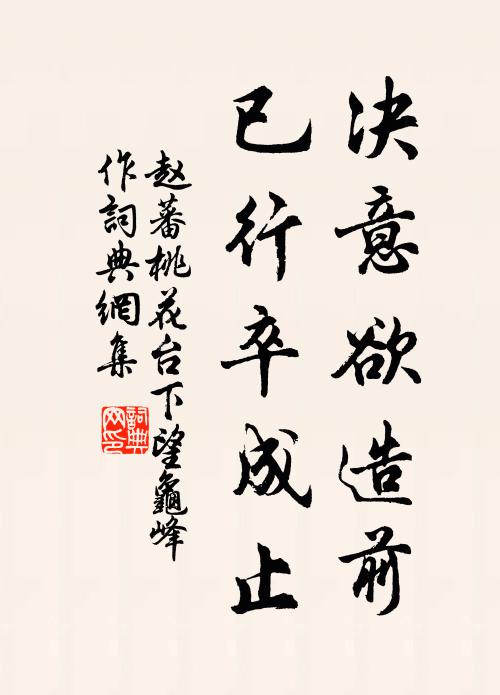 决意欲造前
已行卒成止
赵蕃桃花台下望龜峰
作詞典網集
詞典
网印